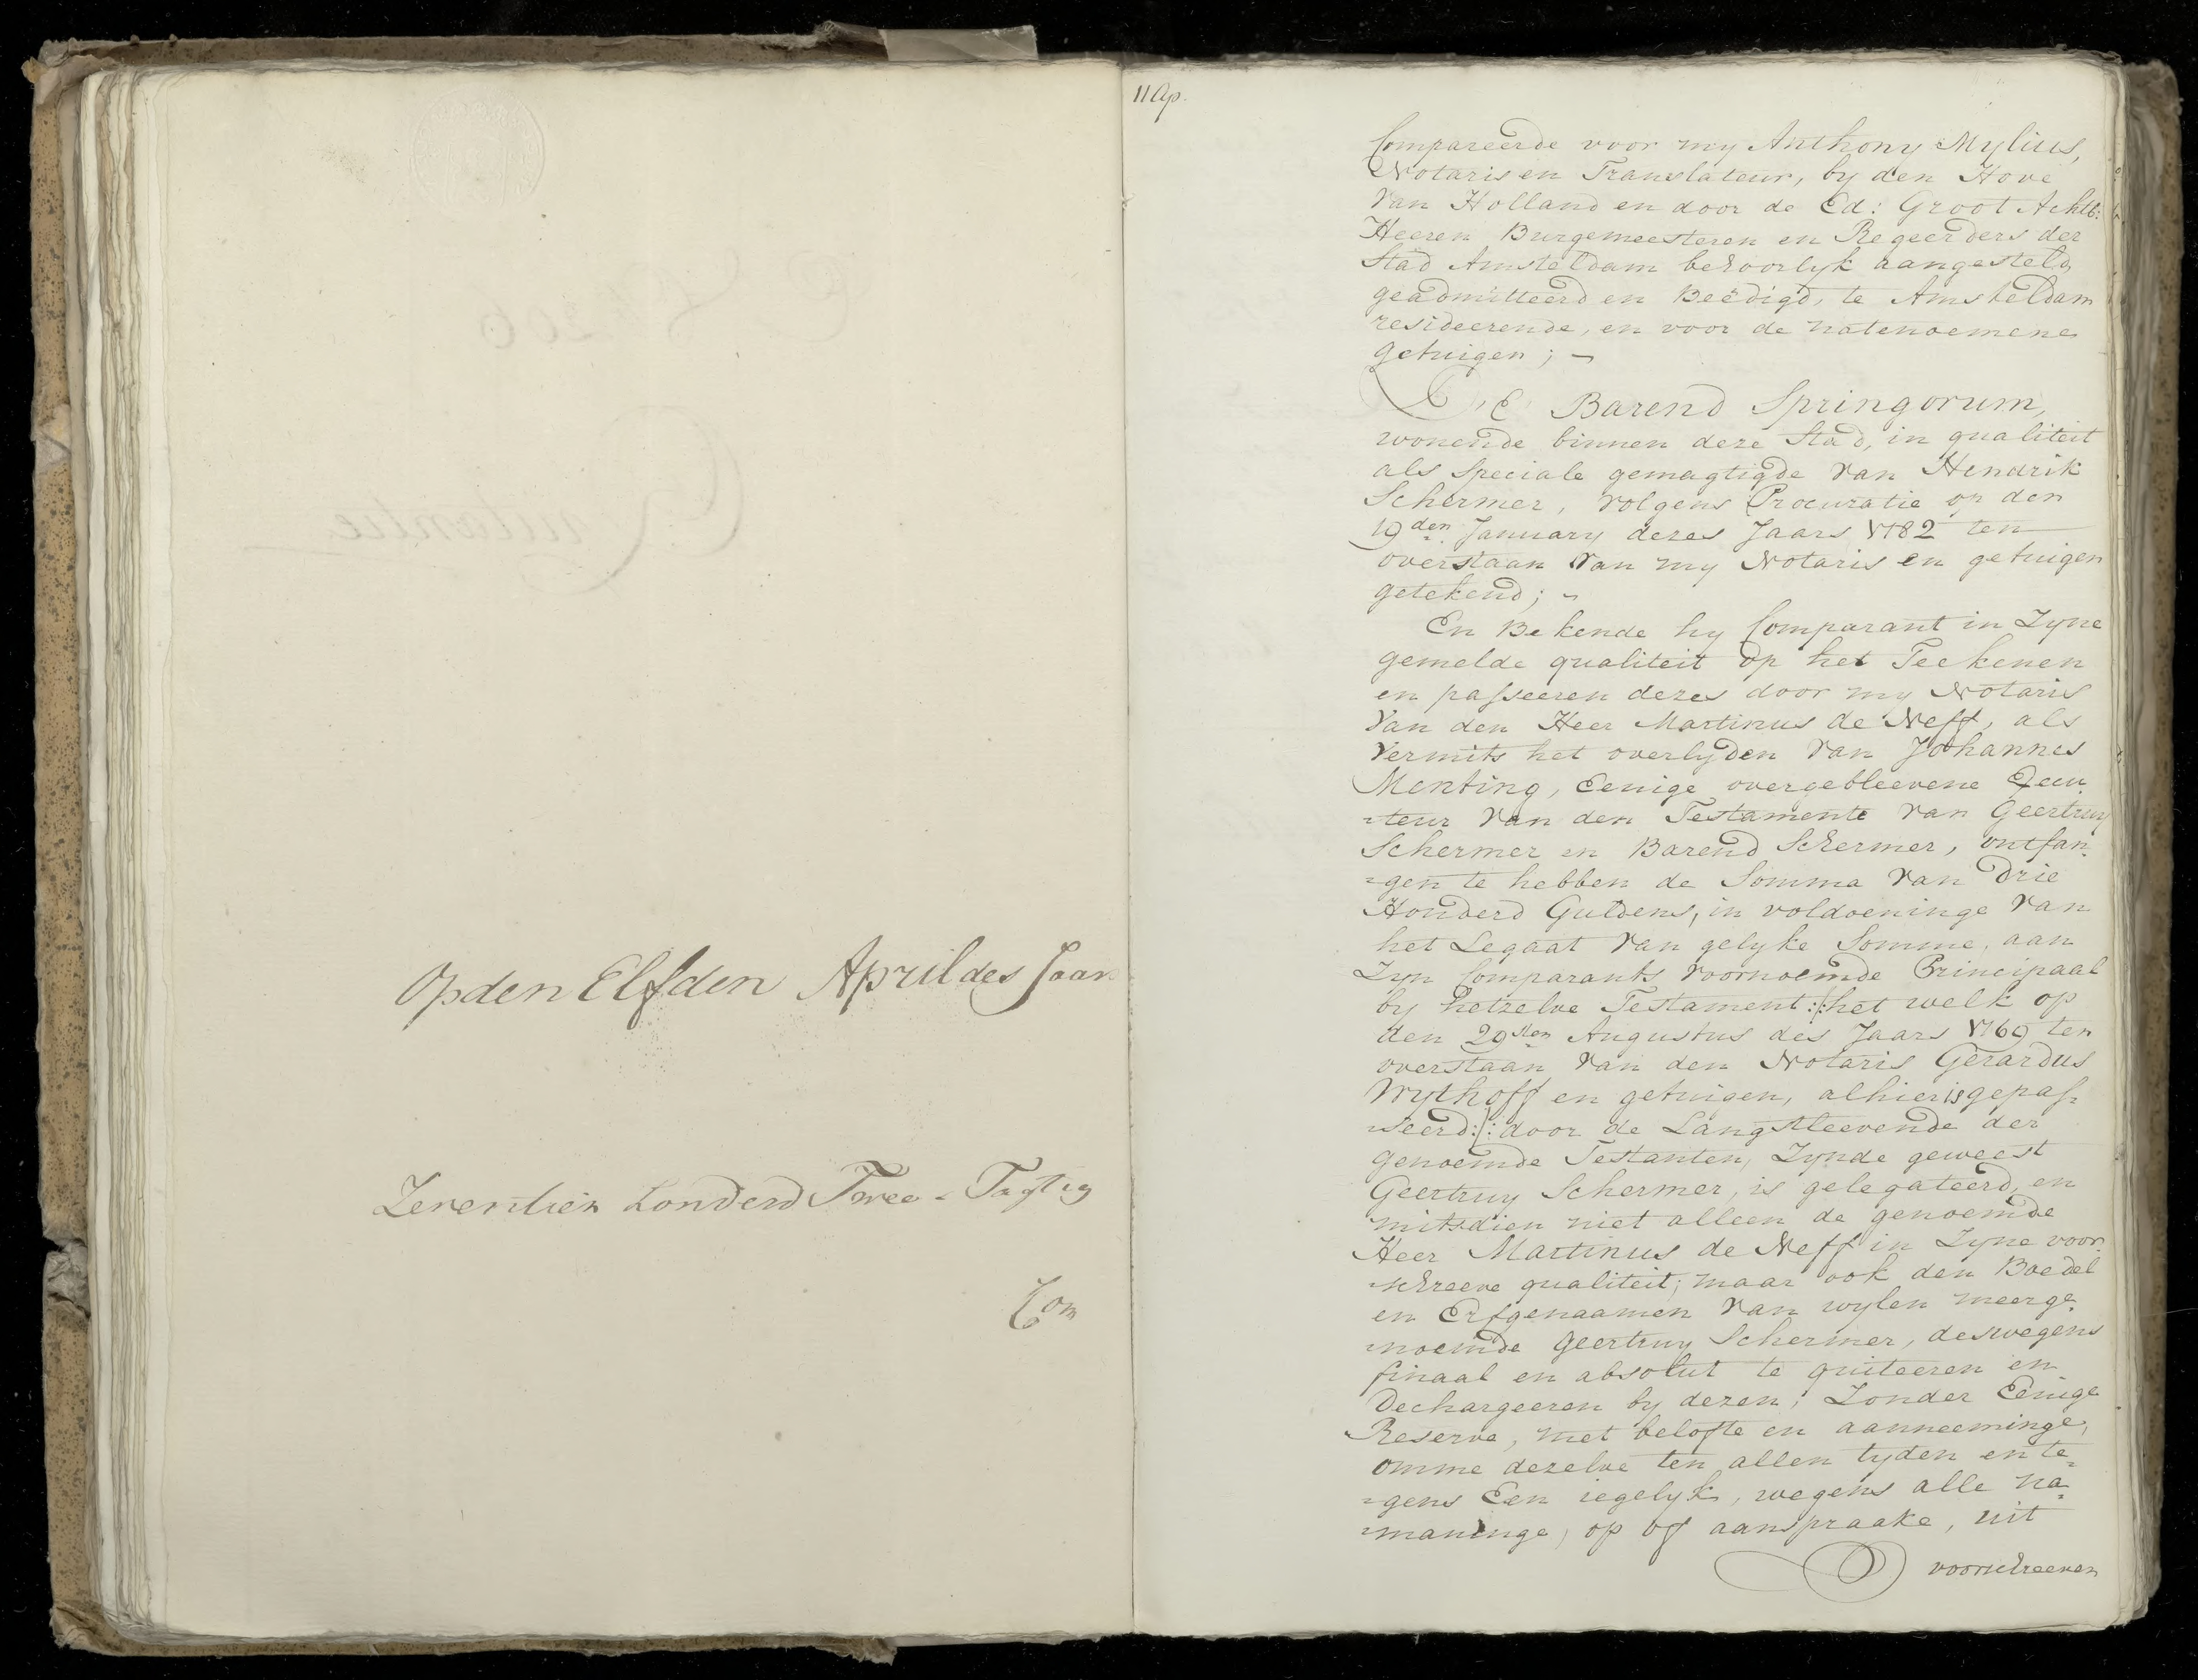 Op den Elfden April des Jaars
Zeventien honderd Twee-Tagtig
Com
11 Ap.
Compareerde voor my Anthony Mylius,
Notaris en Translateur, by den Hove
van Holland en door de Ed: Groot Achtb:
Heeren Burgemeesteren en Regeerders der
Stad Amsteldam behoorlyk aangesteld,
geadmitteerd en Beëdigd, te Amsteldam
resideerende, en voor de natenoemene
getuigen; -
DE Barend Springorum,
wonende binnen deze Stad, in qualiteit
als Speciale gemagtigde van Hendrik
Schermer, volgens Procuratie op den
19den January dezes Jaars 1782 ten
overstaan van my Notaris en getuigen
getekend; -
En Bekende hy Comparant in Zyne
gemelde qualiteit op het Teekenen
en passeeren dezes door my Notaris
van den Heer Martinus de Neff, als
vermits het overlyden van Johannes
Menting, Eenige overgebleevene Ecu-
-teur van den Testamente van Geertruy
Schermer en Barend Schermer, ontfan-
-gen te hebben de Somma van Drie
Honderd Guldens, in voldoeninge van
het Legaat van gelyke Somme, aan
Zyn Comparants voornoemde Principaal
by hetzelve Testament :/: het welk op
den 29sten Augustus des Jaars 1769 ten
overstaan van den Notaris Gerardus
Wythoff en getuigen, alhier is gepas-
-seerd :/: door de Langstleevende der
genoemde Testanten, Zynde geweest
Geertruy Schermer, is gelegateerd, en
mitsdien niet alleen de genoemde
Heer Martinus de Neff in Zyne voor-
-schreeve qualiteit, maar ook den Boedel
en Erfgenaamen van wylen meerge-
-noemde Geertruy Schermer, deswegens
finaal en absolut te quiteeren en
Dechargeeren by dezen, Zonder Eenige
Reserve, met belofte en aanneeminge,
omme dezelve ten allen tyden en te-
-gens Een iegelyk, wegens alle na-
-maninge, op of aanspraake, uit
voorschreeven